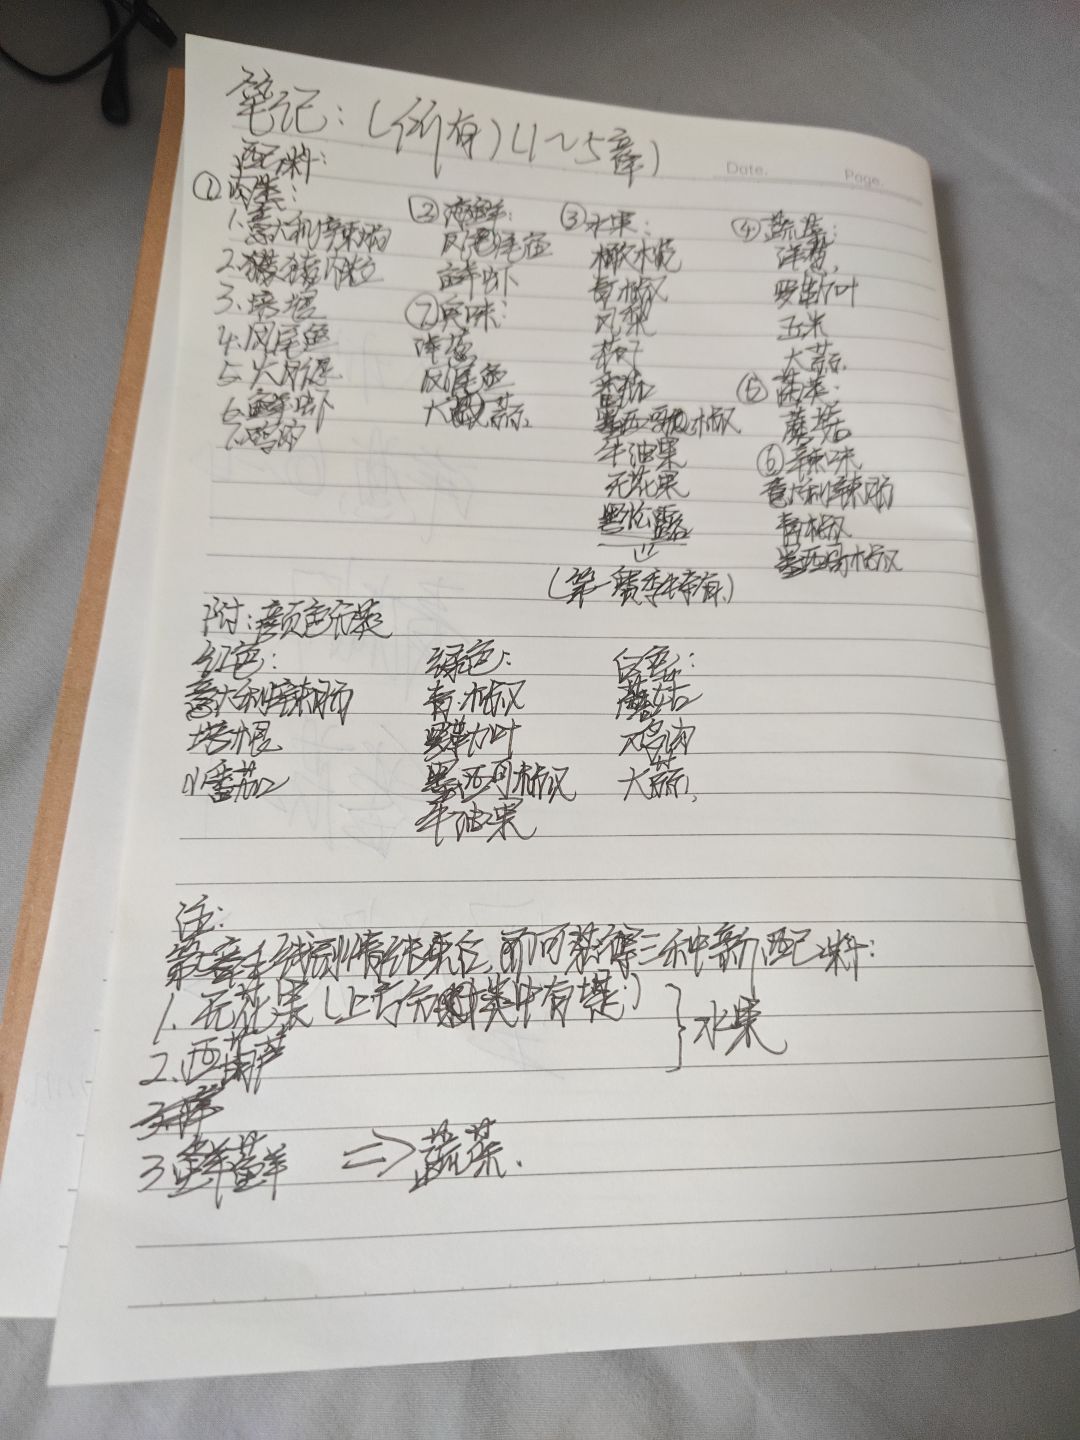 笔记：(所有)(1～5章)
Date. Page.
配料：
①肉类：
1.意大利辣肠
2.猪肉粒
3.培根
4.凤尾鱼
5.火腿
6.鲜虾
7.鸡肉
②海鲜：
凤尾鱼
鲜虾
⑦臭味：
洋葱
凤尾鱼
大蒜
③水果：
橄榄
青椒
凤梨
茄子
番茄
墨西哥椒
牛油果
无花果
黑松露
(第一赛季特有)
④蔬菜：
洋葱
罗勒叶
玉米
大蒜
⑤菌类：
蘑菇
⑥辣味
意大利辣肠
青椒
墨西哥椒
附：颜色分类
红色：
意大利辣肠
培根
番茄
绿色：
青椒
罗勒叶
墨西哥椒
牛油果
白色：
蘑菇
鸡肉
大蒜
注：
第章主线剧情结束后，而可获得三种新配料：
1.无花果(上方分类中有提)
2.西葫芦
}水果
3.
⇒蔬菜.